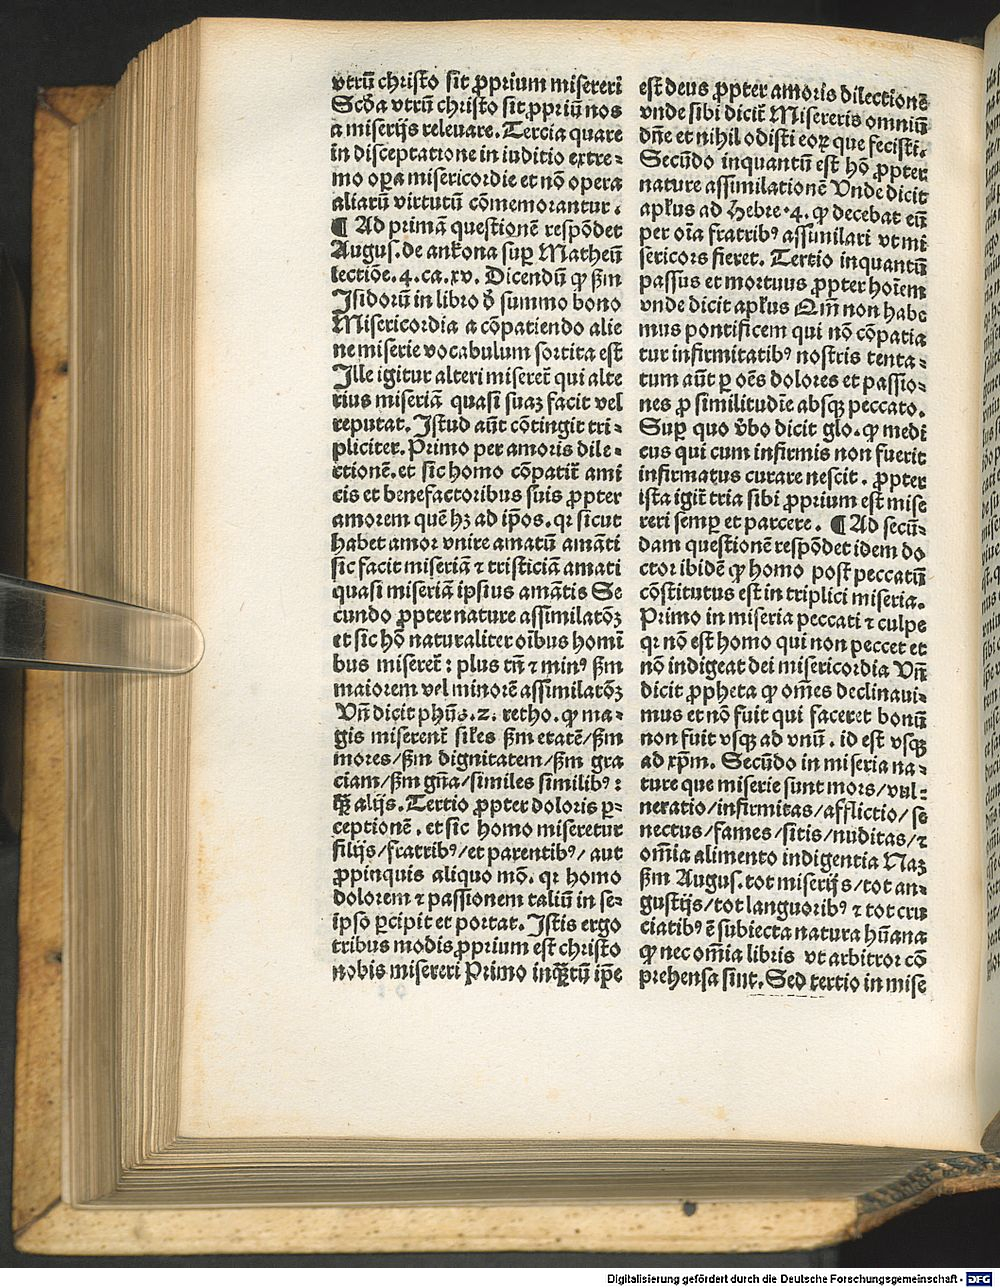 vtrū christo sit ꝓprium misereri
Scḋa vtrū christo sit ꝓpriū nos
a miserijs releuare. Tercia quare
in disceptatione in iuditio extre⸗
mo oꝑa misericordie et nō opera
aliarū virtutū cōmemorantur.
¶ Ad primā questionē respōdet
Augus. de ankona suꝑ Matheū
lectiōe. 4. ca. xv. Dicendū ꝙ ẜm
Isidorū in libro ḋ summo bono
Misericordia a cōpatiendo alie
ne miserie vocabulum sortita est
Ille igitur alteri miseret̃ qui alte
rius miseriā quasi suaꝫ facit vel
reputat. Istud aūt cōtingit tri⸗
pliciter. Primo per amoris dile⸗
ctionē. et sic homo cōpatit̃ ami
cis et benefactoribus suis ꝓpter
amorem quē hꝫ ad ip̄os. qꝛ sicut
habet amor vnire amatū amāti
sic facit miseriā ⁊ tristiciā amati
quasi miseriā ipsius amātis Se
cundo ꝓpter nature assimilatōꝫ
et sic hō naturaliter oībus homī
bus miseret̃: plus tn̄ ⁊ minꝰ ẜm
maiorem vel minorē assimilatōꝫ
Vn̄ dicit phūs. 2. retho. ꝙ ma⸗
gis miserent̃ sil̃es ẜm etatē/ẜm
mores/ẜm dignitatem/ẜm gra
ciam/ẜm gn̄a/similes similibꝰ:
ꝙ̄ alijs. Tertio ꝓpter doloris ꝑ⸗
ceptionē. et sic homo miseretur
filijs/fratribꝰ/et parentibꝰ/ aut
ꝓpinquis aliquo mō. qꝛ homo
dolorem ⁊ passionem taliū in se⸗
ipso ꝑcipit et portat. Istis ergo
tribus modis ꝓprium est christo
nobis misereri Primo inꝙ̄tū ip̄e
est deus ꝓpter amoris dilectionē
vnde sibi dicit̃ Misereris omniū
dn̄e et nihil odisti eoꝝ que fecisti.
Secūdo inquantū est hō ꝓpter
nature assimilationē Vnde dicit
apl̃us ad Hebre. 4. ꝙ decebat eū
per oīa fratribꝰ assimilari vt mi
sericors fieret. Tertio inquantū
passus et mortuus ꝓpter hoīem
vnde dicit apl̃us Qm̄ non habe
mus pontificem qui nō cōpatia
tur infirmitatibꝰ nostris tenta⸗
tum aūt ꝑ oēs dolores et passio⸗
nes ꝓ similitudīe absqꝫ peccato.
Suꝑ quo v̄bo dicit glo. ꝙ medi
cus qui cum infirmis non fuerit
infirmatus curare nescit. ꝓpter
ista igit̃ tria sibi ꝓprium est mise
reri semꝑ et parcere. ¶ Ad secū⸗
dam questionē respōdet idem do
ctor ibidē ꝙ homo post peccatū
cōstitutus est in triplici miseria.
Primo in miseria peccati ⁊ culpe
qꝛ nō est homo qui non peccet et
nō indigeat dei misericordia Vn̄
dicit ꝓpheta ꝙ om̄es declinaui⸗
mus et nō fuit qui faceret bonū
non fuit vsqꝫ ad vnū. id est vsqꝫ
ad xp̄m. Secūdo in miseria na⸗
ture que miserie sunt mors/vul⸗
neratio/infirmitas/afflictio/se
nectus/fames/sitis/nuditas/⁊
om̄ia alimento indigentia Naꝫ
ẜm Augus. tot miserijs/tot an⸗
gustijs/tot languoribꝰ ⁊ tot cru
ciatibꝰ ē subiecta natura hūana
ꝙ nec om̄ia libris vt arbitror cō
prehensa sint. Sed tertio in mise
Digitalisierung gefördert durch die Deutsche Forschungsgemeinschaft - DFG